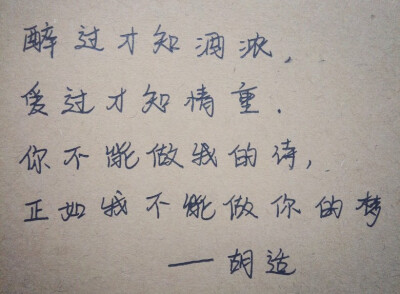 醉过才知酒浓，
爱过才知情重．
你不能做我的诗，
正如我不能做你的梦
——胡适